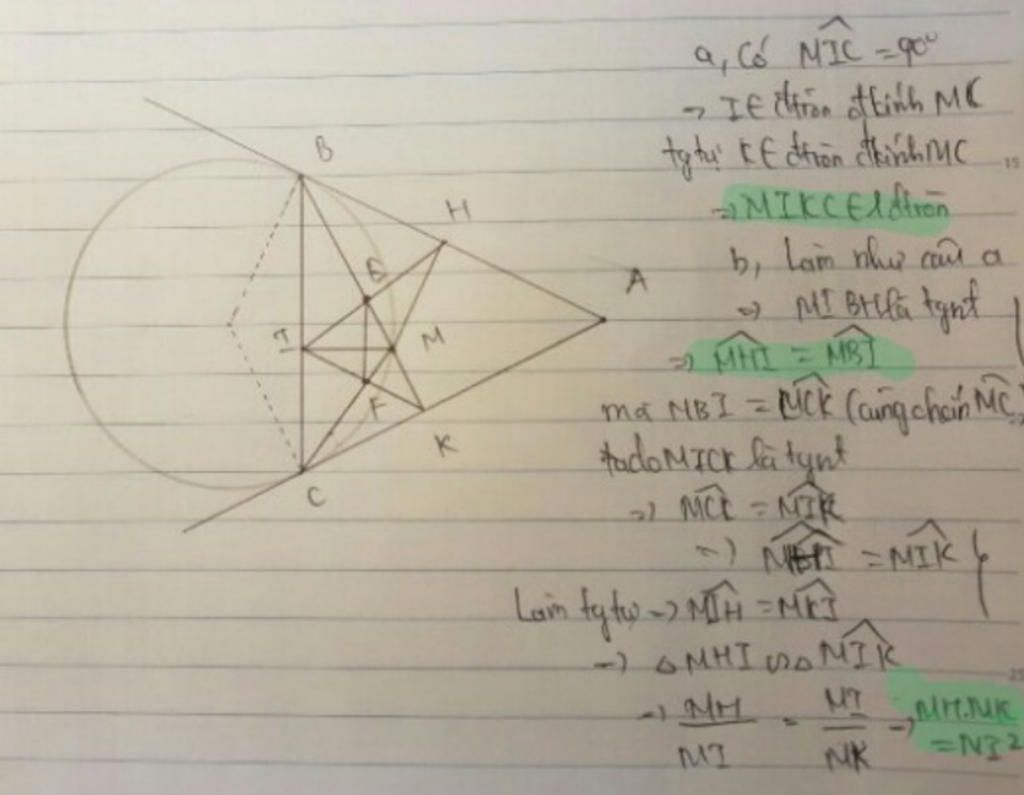 B
H
A
E
I
M
F
K
C
a, Có MIC = 90°
→ I ∈ đtròn đkính MC
tg tự K ∈ đtròn đkính MC
15
=> MIKC ∈ 1 đtròn
b, Làm như câu a
=> MIBH là tgnt
=> MHI = MBI
mà MBI = MCK (cùng chắn MC)
ta do MICK là tgnt
=> MCK = MIK
=> MHI = MIK
Làm tg tự → MIH = MKI
→ △MHI ∽ △MIK
25
→ MH/MI = MI/MK → MH.MK = MI²